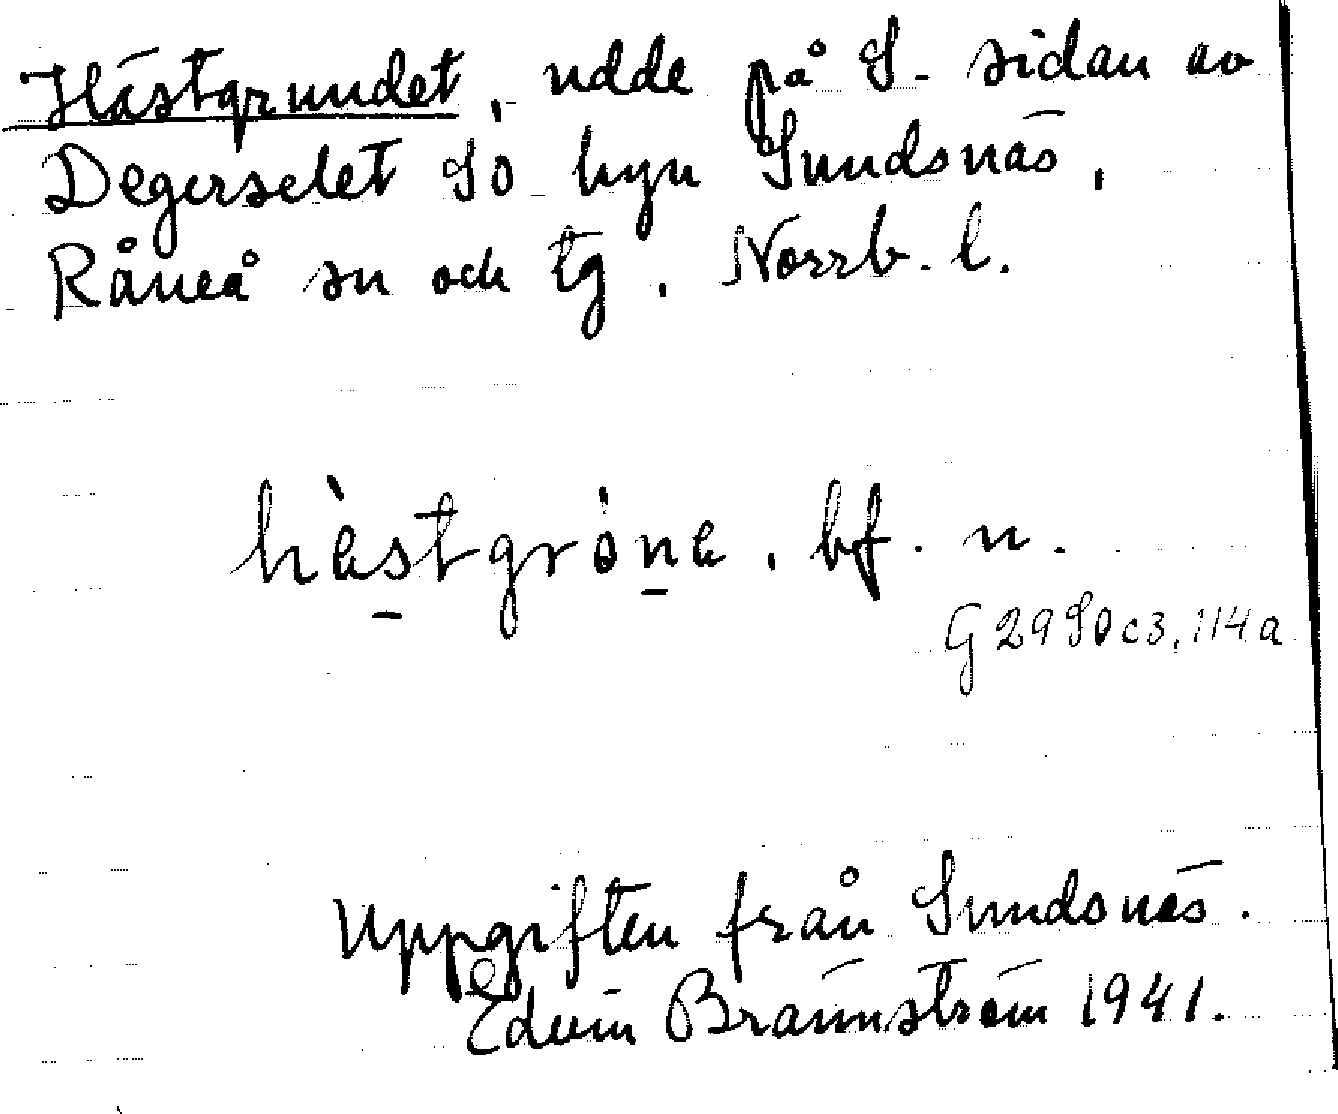 Hästgrundet, udde på S. sidan av
Degerselet SÖ byn Sundsnäs,
Råneå sn och tg. Norrb. l.
hàstgróna. bf. n.
G 2980c3, 114a
Uppgiften från Sundsnäs.
Edvin Brännström 1941.